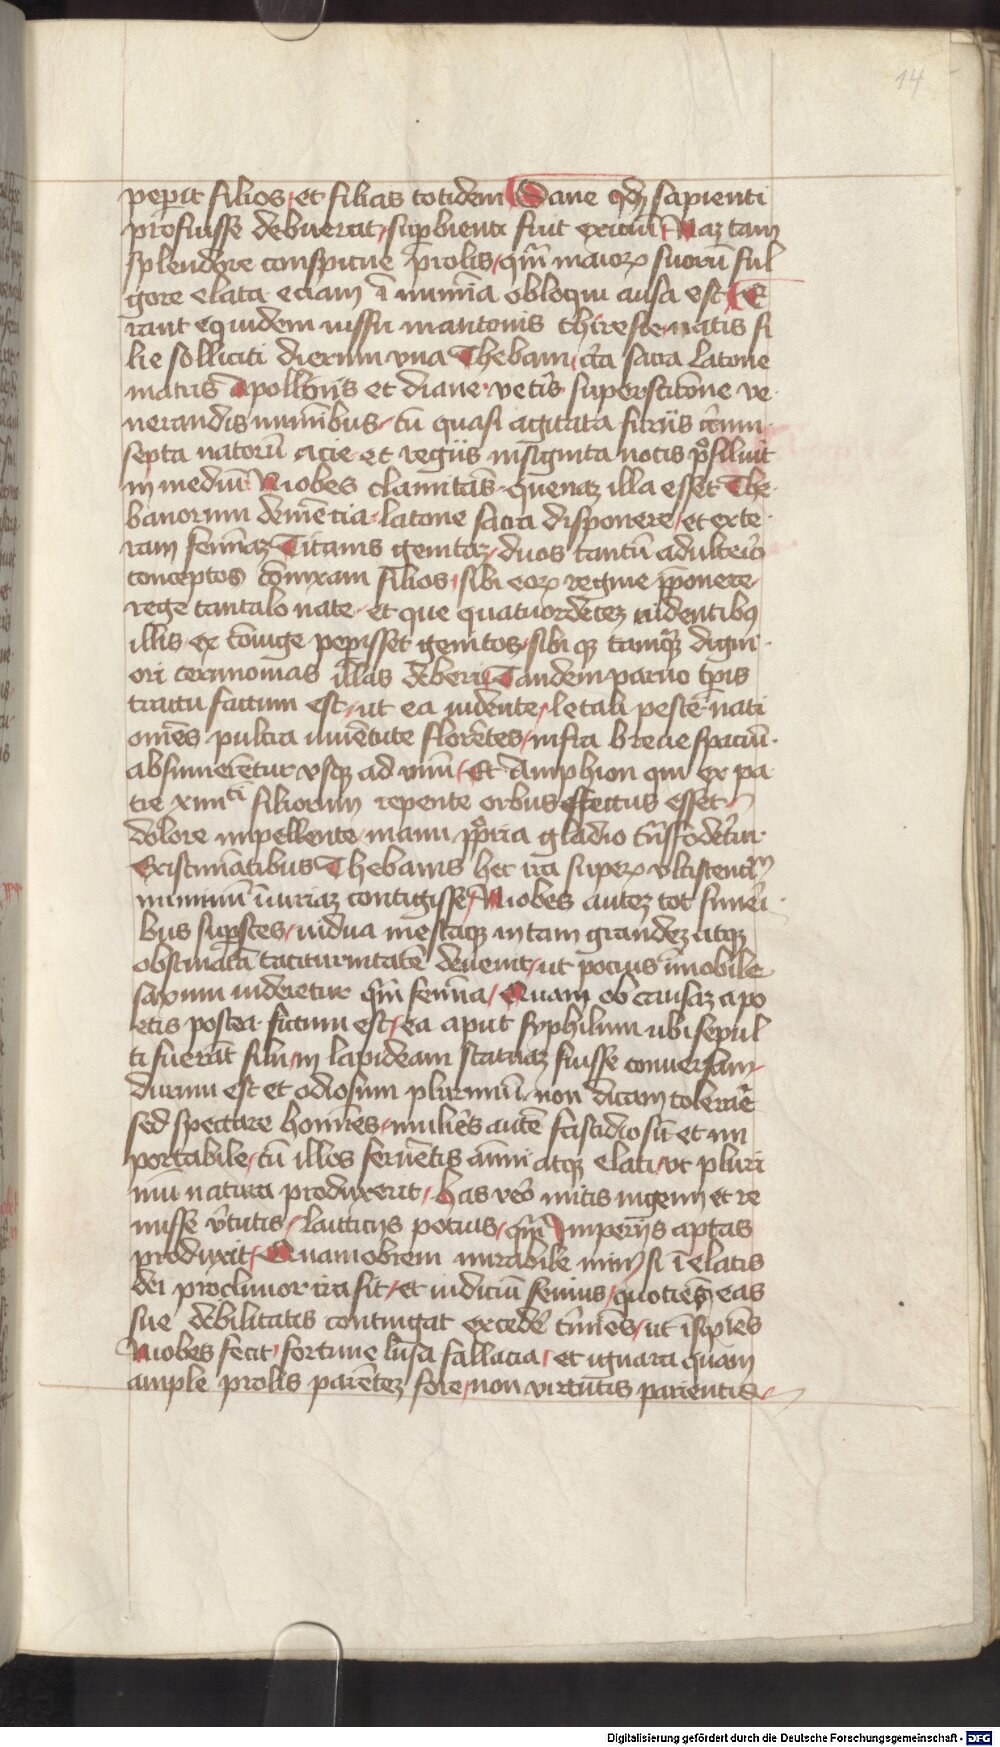 14
peperit filios, et filias totidem Sane qd sapienti
profuisse debuerat, suꝑbienti fuit exiciū, Naꝫ tam
splendore conspicue prolis, qm̄ maioꝝ suorū ful
gore elata eciam ī numīa obloqui ausa est, E
rant equidem iussu mantonis thiresie, natis fi
lie solliciti dierum vna Thebani, cͥta sacra Latone
matris Apollinīs et diane, vetīs superstitōne ve
nerandis numībus, cū quasi agitata furiis ctͫum
septa natorū acie, et regiis insignita notis ꝓsiluit
in mediū Niobes clamitās, quenaꝫ illa esset The
banorum demētia, latone sacra disponere, et exte
ram femīaꝫ Titanis genitaꝫ, duos tantū adulteͥo
conceptos ēnixam filios, sibi eoꝝ regine p̄ponere
rege tantalo nate, et que quatuordeceꝫ uidentibꝰ
illis, ex cōiuge pepisset genitos, sibi qꝫ tamqͣꝫ digni
ori cerimonias illas deberi, Tandem paruo tp̄is
tractu factum est, ut ea uidente, letali peste nati
omēs pulcra iuuētute florētes, infra breue spaciū
absumerētur vsqꝫ ad vnū, Et Amphion qui ex pa
tre xiiii filiorum repente orbus effectus esset
dolore impellente manu ꝓpria gladio tͣnsfoderet̄ur
Existimātibus Thebanis hec ira supeꝝ vlciscentiū
numinū iniuriaꝫ contigisse, Niobes auteꝫ tot funeri
bus suꝑstes, uidua mestaqꝫ in tam grandeꝫ atqꝫ
obstinatā taciturnitatē deuenit, ut pocius īmobile
saxum uideretur qm̄ femīa, Quam ob causaꝫ a po
etis postea fictum est, ea aput syphilum ubi sepul
ti fuerāt filii, in lapideam statuaꝫ fuisse conuersam,
durum est et odiosum plurimū, non dicam tolerare
sed spectare homīes, mulieͥs autē fastidiosū et im
portabile, cū illos feruētis animi atqꝫ elati, ut pluri
mū natura produxerit, has veͦ mitis ingenij et re
misse vͥtutis, lauticijs potius, qm̄ Imperijs aptas
produxit, Quamobrem mirabile minꝰ si ī elatis
dei procliuior ira sit, et iudiciū seuius, quotiēs eas
sue debilitatis contingat excedeͤ tͥmīos, ut īsipiēs
Niobes fecit, fortune lusa fallacia, et ignara quam
ample prolis parēteꝫ fore, non virtutis parientis,
Digitalisierung gefördert durch die Deutsche Forschungsgemeinschaft - DFG